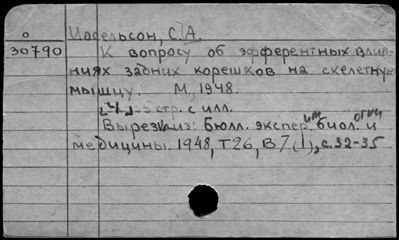 О Иосельсон, С. А.
30790 К вопросу об эфферентных влия-
ниях задних корешков на скелетную
мышцу. М, 1948.
стр. с илл.
Вырезка из: Бюлл. экспер. биол. и
медицины. 1948, Т26, В7(1), с.32-35